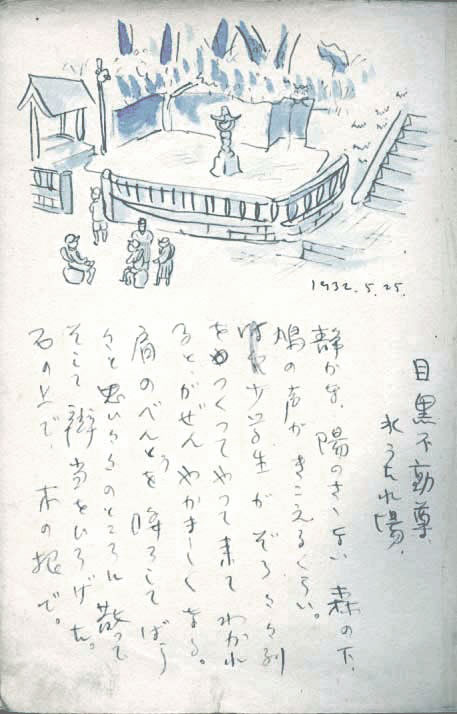 1932.5.25.
目黒不動尊
水うたれ陽、
静かな、陽のさゝない森の下、
鳩の声がきこえるくらい。
小学生がぞろぞろ列
をつくつてやつて来てわかれ
ると、がぜんやかましくなる。
肩のべんとうを降ろしてばら
々と思い々々のところに散って
そして辯当をひろげた。
石の上で、木の根で。